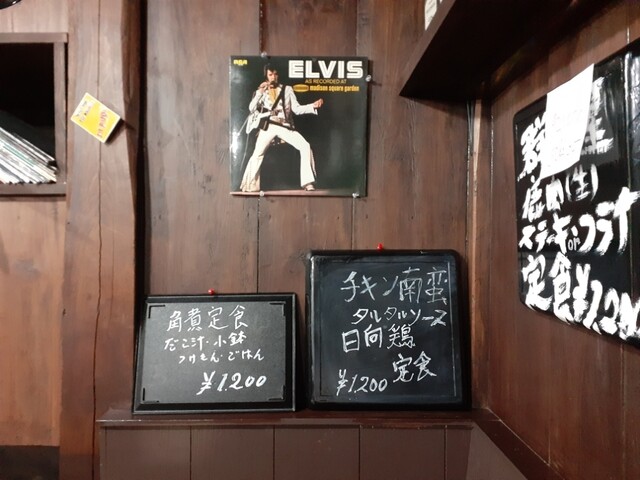 RCA
ELVIS
AS RECORDED AT
madison square garden
角煮定食
だご汁・小鉢
つけもん・ごはん
¥1,200
チキン南蛮
タルタルソース
日向鶏
定食
¥1,200
(生)
ステーキorフライ
定食¥1,200